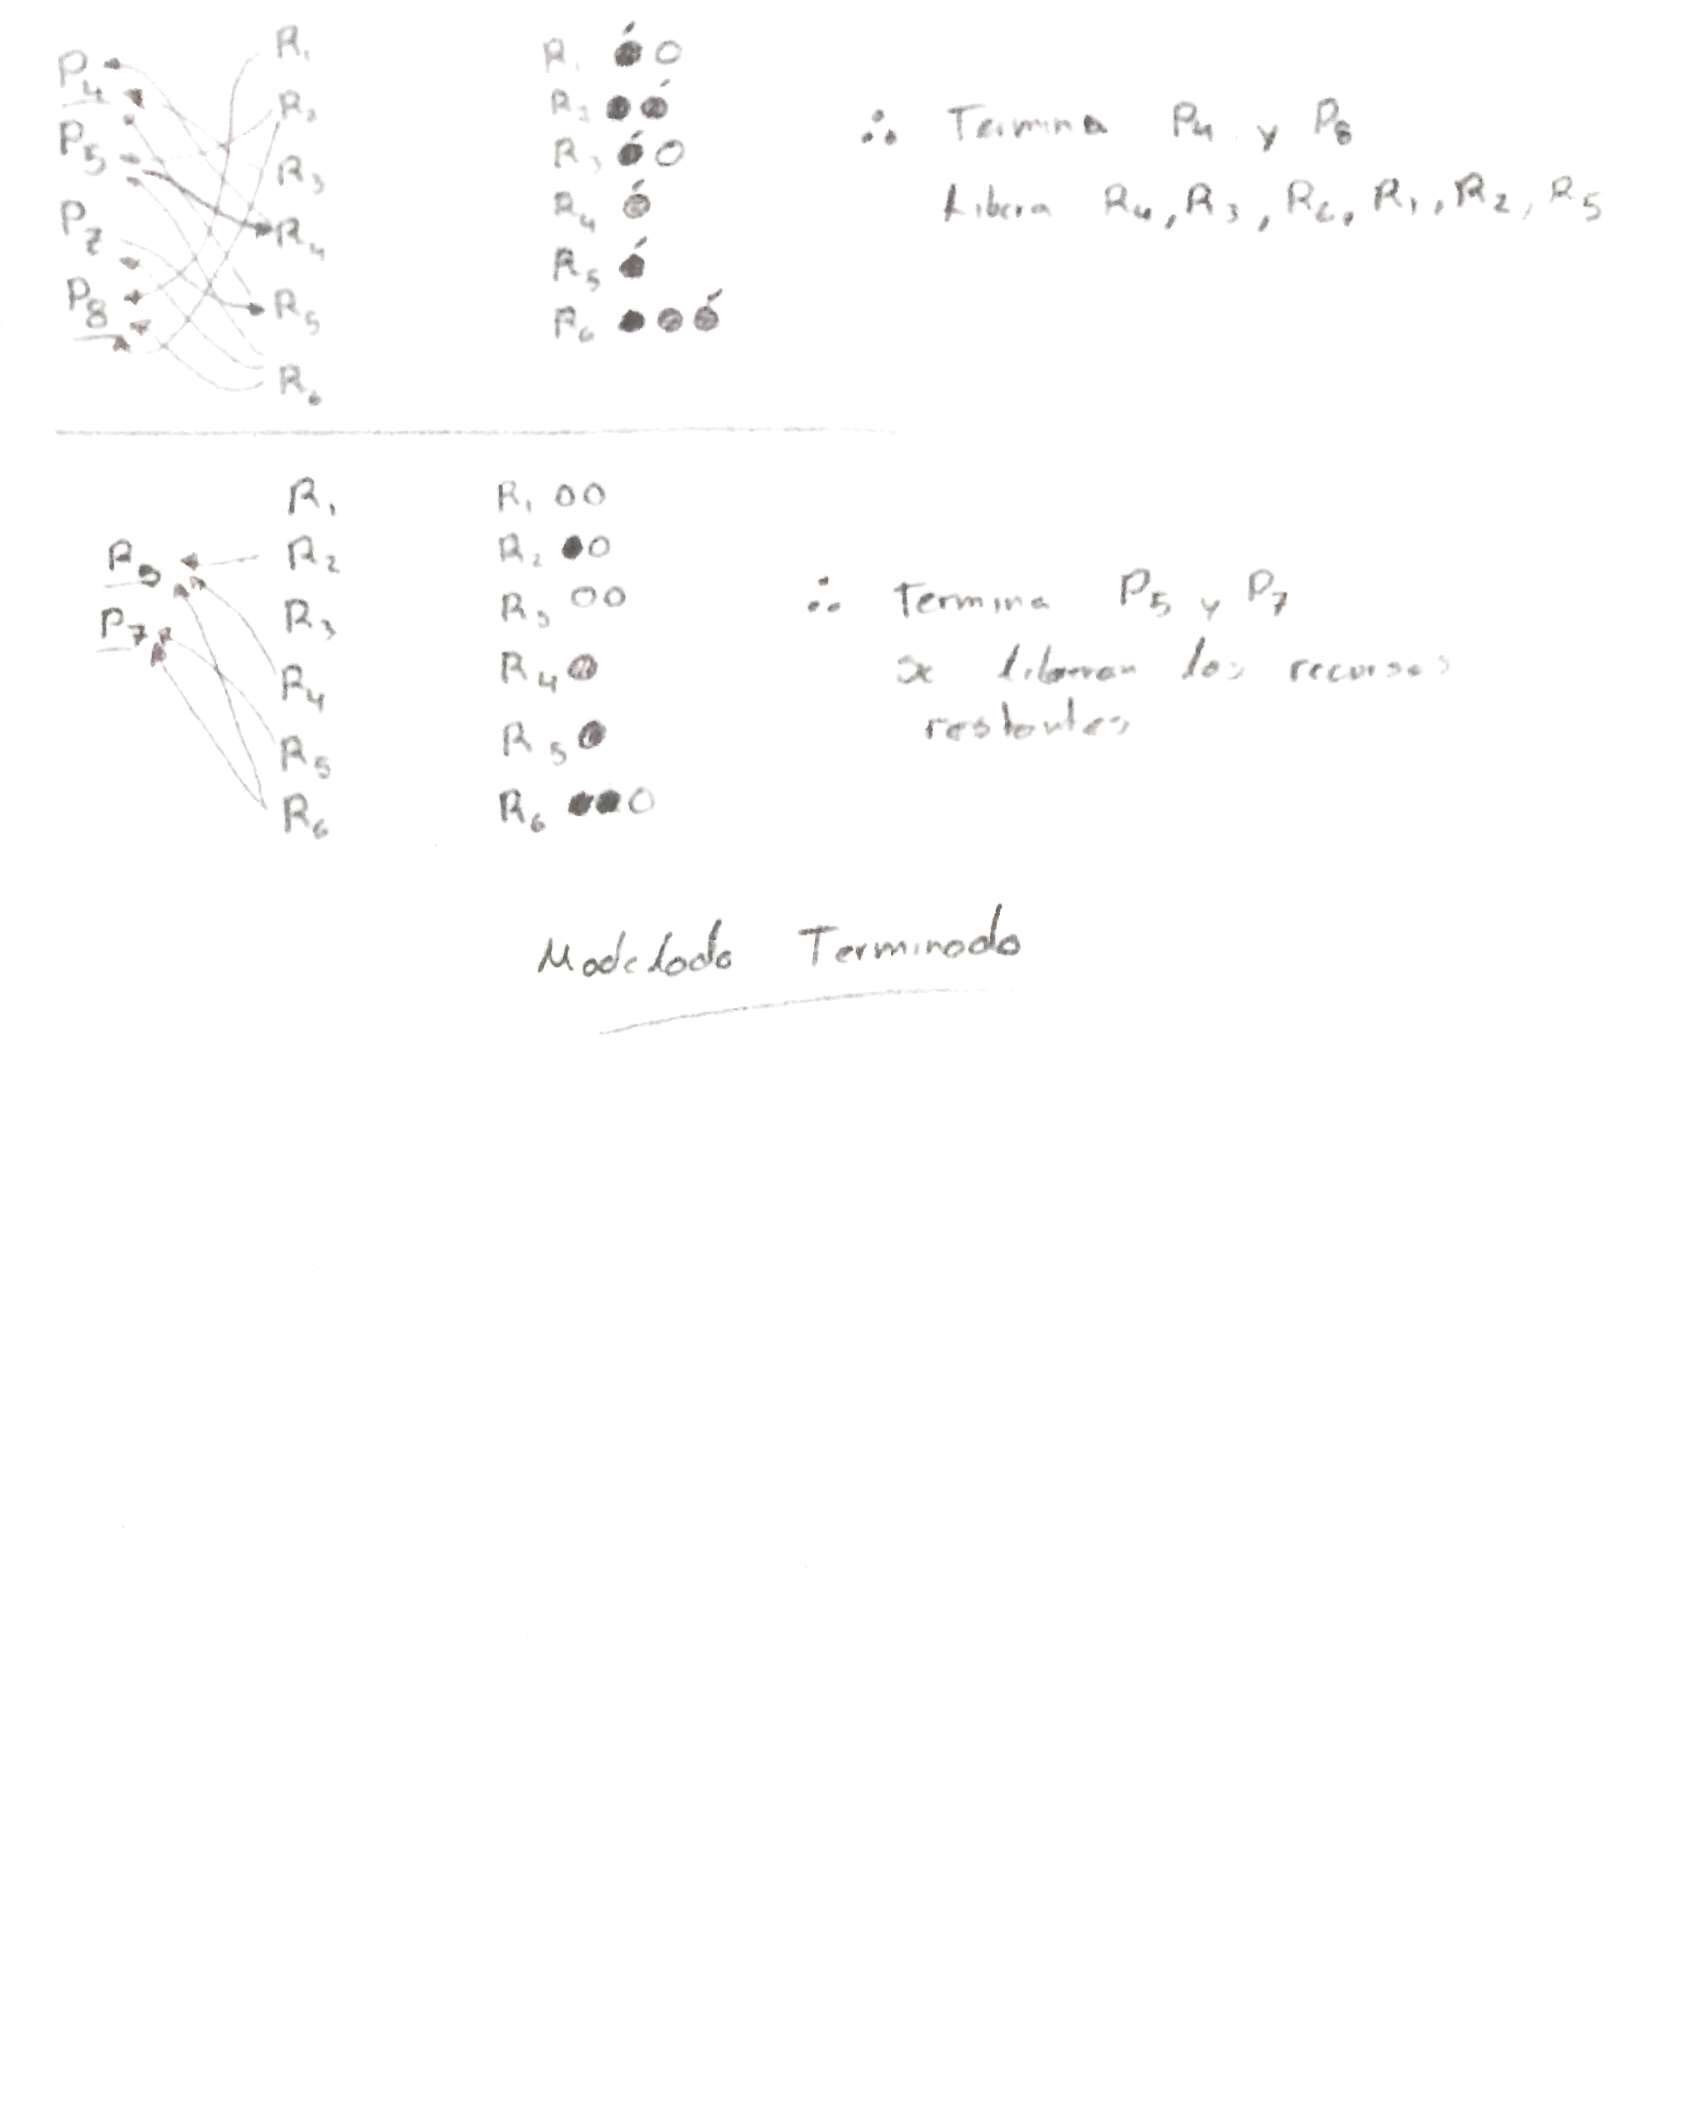 P4
P5
P7
P8
R1
R2
R3
R4
R5
R6
R1 ●○
R2 ●●
R3 ●○
R4 ●
R5 ●
R6 ●●●
∴ Termina P4 y P8
Libera R4, R3, R6, R1, R2, R5
R1
R2
R3
R4
R5
R6
P5
P7
R1 ○○
R2 ●○
R3 ○○
R4 ●
R5 ●
R6 ●●○
∴ Termina P5 y P7
se liberan los recursos
restantes
Modelado Terminado